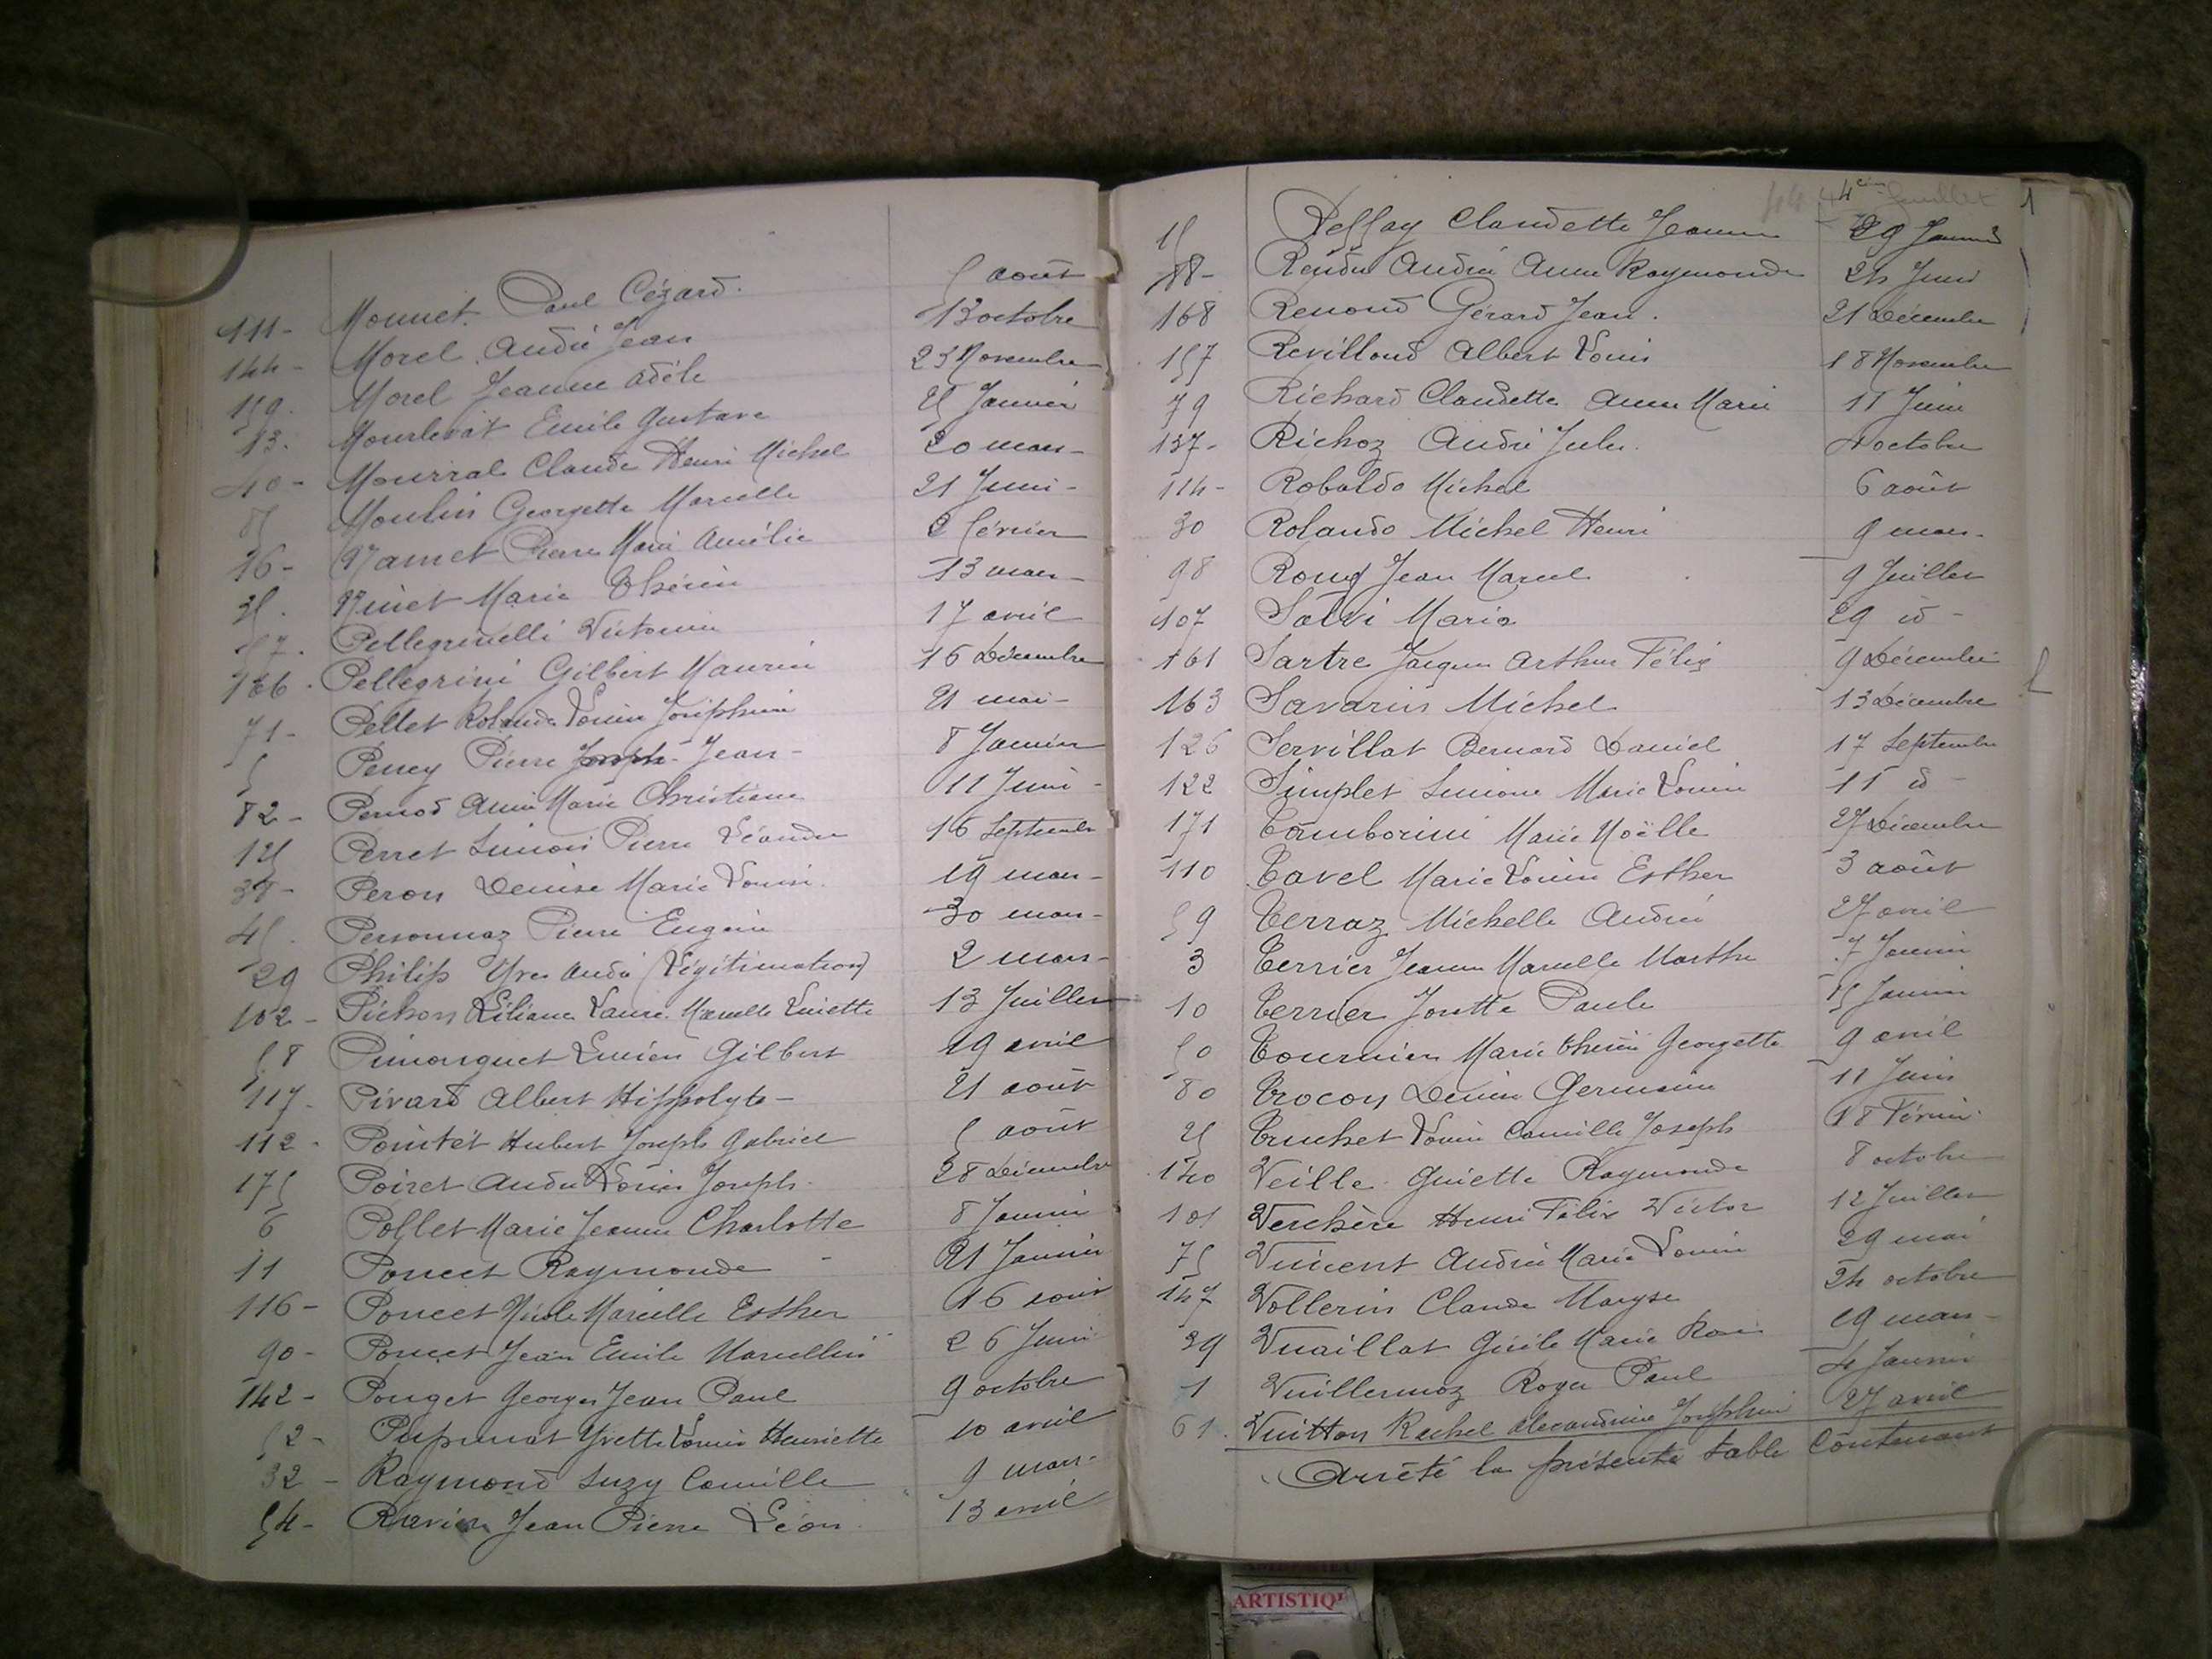 111- Monnet Paul Cézard. 5 août
144- Morel André Jean 13 octobre
159. Morel Jeanne Adèle 23 Novembre
13. Mourlevat Emile Gustave 25 Janvier
40- Mourral Claude Henri Michel 20 mars-
85 Moulin Georgette Marcelle 21 Juin-
16- Namet Pierre Marie Amélie 2 février
35. Ninet Marie Thérèse 13 mars-
57. Pellegrinelli Victorine 17 avril
166. Pellegrini Gilbert Maurice 16 Décembre
71- Pellet Rolande Louise Joséphine 21 mai-
5 Peney Pierre Joseph- Jean- 8 Janvier
82- Pernod Anne Marie Christiane 11 Juin-
125 Perret Simon Pierre Léandre 16 Septembre
38- Peron Denise Marie Louise. 19 mars-
45. Personnaz Pierre Eugène 30 mars-
29 Philip Yves André (Légitimation) 2 mars-
102- Pichon Liliane Laure Marcelle Luiette 13 Juillet
58 Pimorguet Lucien Gilbert 19 avril
117. Pivard Albert Hippolyte- 21 août
112. Pointet Hubert Joseph Gabriel 5 août
175 Poiret André Louis Joseph. 28 Décembre
6 Pollet Marie Jeanne Charlotte 8 Janvier
11 Poncet Raymonde 21 Janvier
116- Poncet Nicole Marcelle Esther 16 août
90- Poncet Jean Emile Marcellin 26 Juin
142- Pouget Georges Jean Paul 9 octobre
52- Pupunat Yvette Louise Henriette 10 avril
32- Raymond Suzy Camille 9 mars-
54- Ravier Jean Pierre Léon. 13 avril
44 44ème feuillet 1
15 Reffay Claudette Jeanne 29 Janvier
88- Rendu Andrée Anne Raymonde 24 Juin
168 Renond Gérard Jean. 21 Décembre
157 Revilloud Albert Louis 18 Novembre
79 Richard Claudette Anne Marie 11 Juin
137- Richoz André Jules. 4 octobre
114- Robaldo Michel 6 août
30 Rolando Michel Henri 9 mars-
98 Roux Jean Marcel 9 Juillet
107 Salvi Maria 29 id-
161 Sartre Jacques Arthur Félix 9 Décembre
163 Savarin Michel 13 Décembre
126 Servillat Bernard Daniel 17 Septembre
122 Simplet Simone Marie Louise 11 id-
171 Tamborini Marie Noëlle 27 Décembre
110 Tavel Marie Louise Esther 3 août
59 Terraz Michelle Andrée 27 avril
3 Terrier Jeanne Marcelle Marthe 7 Janvier
10 Terrier Josette Paule 15 Janvier
50 Tournier Marie Thérèse Georgette 9 avril
80 Trocon Denise Germaine 11 Juin
25 Truchet Louis Camille Joseph 18 Février.
140 Veille Guiette Raymonde 8 octobre
101 Verchère Henri Félix Victor 12 Juillet
75 Vincent Andrée Marie Louise 29 mai
147 Vollerin Claude Maryse 24 octobre
39 Vuaillat Cécile Marie Rose 19 mars-
1 Vuillermoz Roger Paul 4 Janvier
61. Vuitton Rachel Alexandrine Joséphine 27 avril
Arrêté la présente table contenant
ARTISTIQ